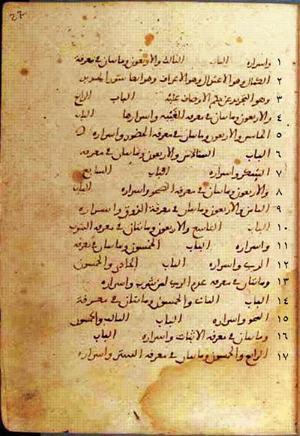 27
١ واسراره الباب الثالث والاربعون ومايتان في معرفة
٢ الكمال وهو الاعتدال وهو الاعراف وهو
٣ وهو التنزه عن حكم الاوصاف عليه الباب الرابع
٤ والاربعون ومايتان في معرفة الغيبة واسرارها الباب
٥ الخامس والاربعون ومايتان في معرفة الحضور واسراره
٦ الباب السادس والاربعون ومايتان في معرفة
٧ السكر واسراره الباب السابع
٨ والاربعون ومايتان في معرفة الصحو واسراره الباب
٩ الثامن والاربعون ومايتان في معرفة الذوق واسراره
١٠ الباب التاسع والاربعون ومايتان في معرفة الشرب
١١ واسراره الباب الخمسون ومايتان في معرفة
١٢ الري واسراره الباب الحادي والخمسون
١٣ ومايتان في معرفة عدم الري لمن شرب واسراره
١٤ الباب الثاني والخمسون ومايتان في معرفة
١٥ المحو واسراره الباب الثالث والخمسون
١٦ ومايتان في معرفة الاثبات واسراره الباب
١٧ الرابع والخمسون ومايتان في معرفة الستر واسراره